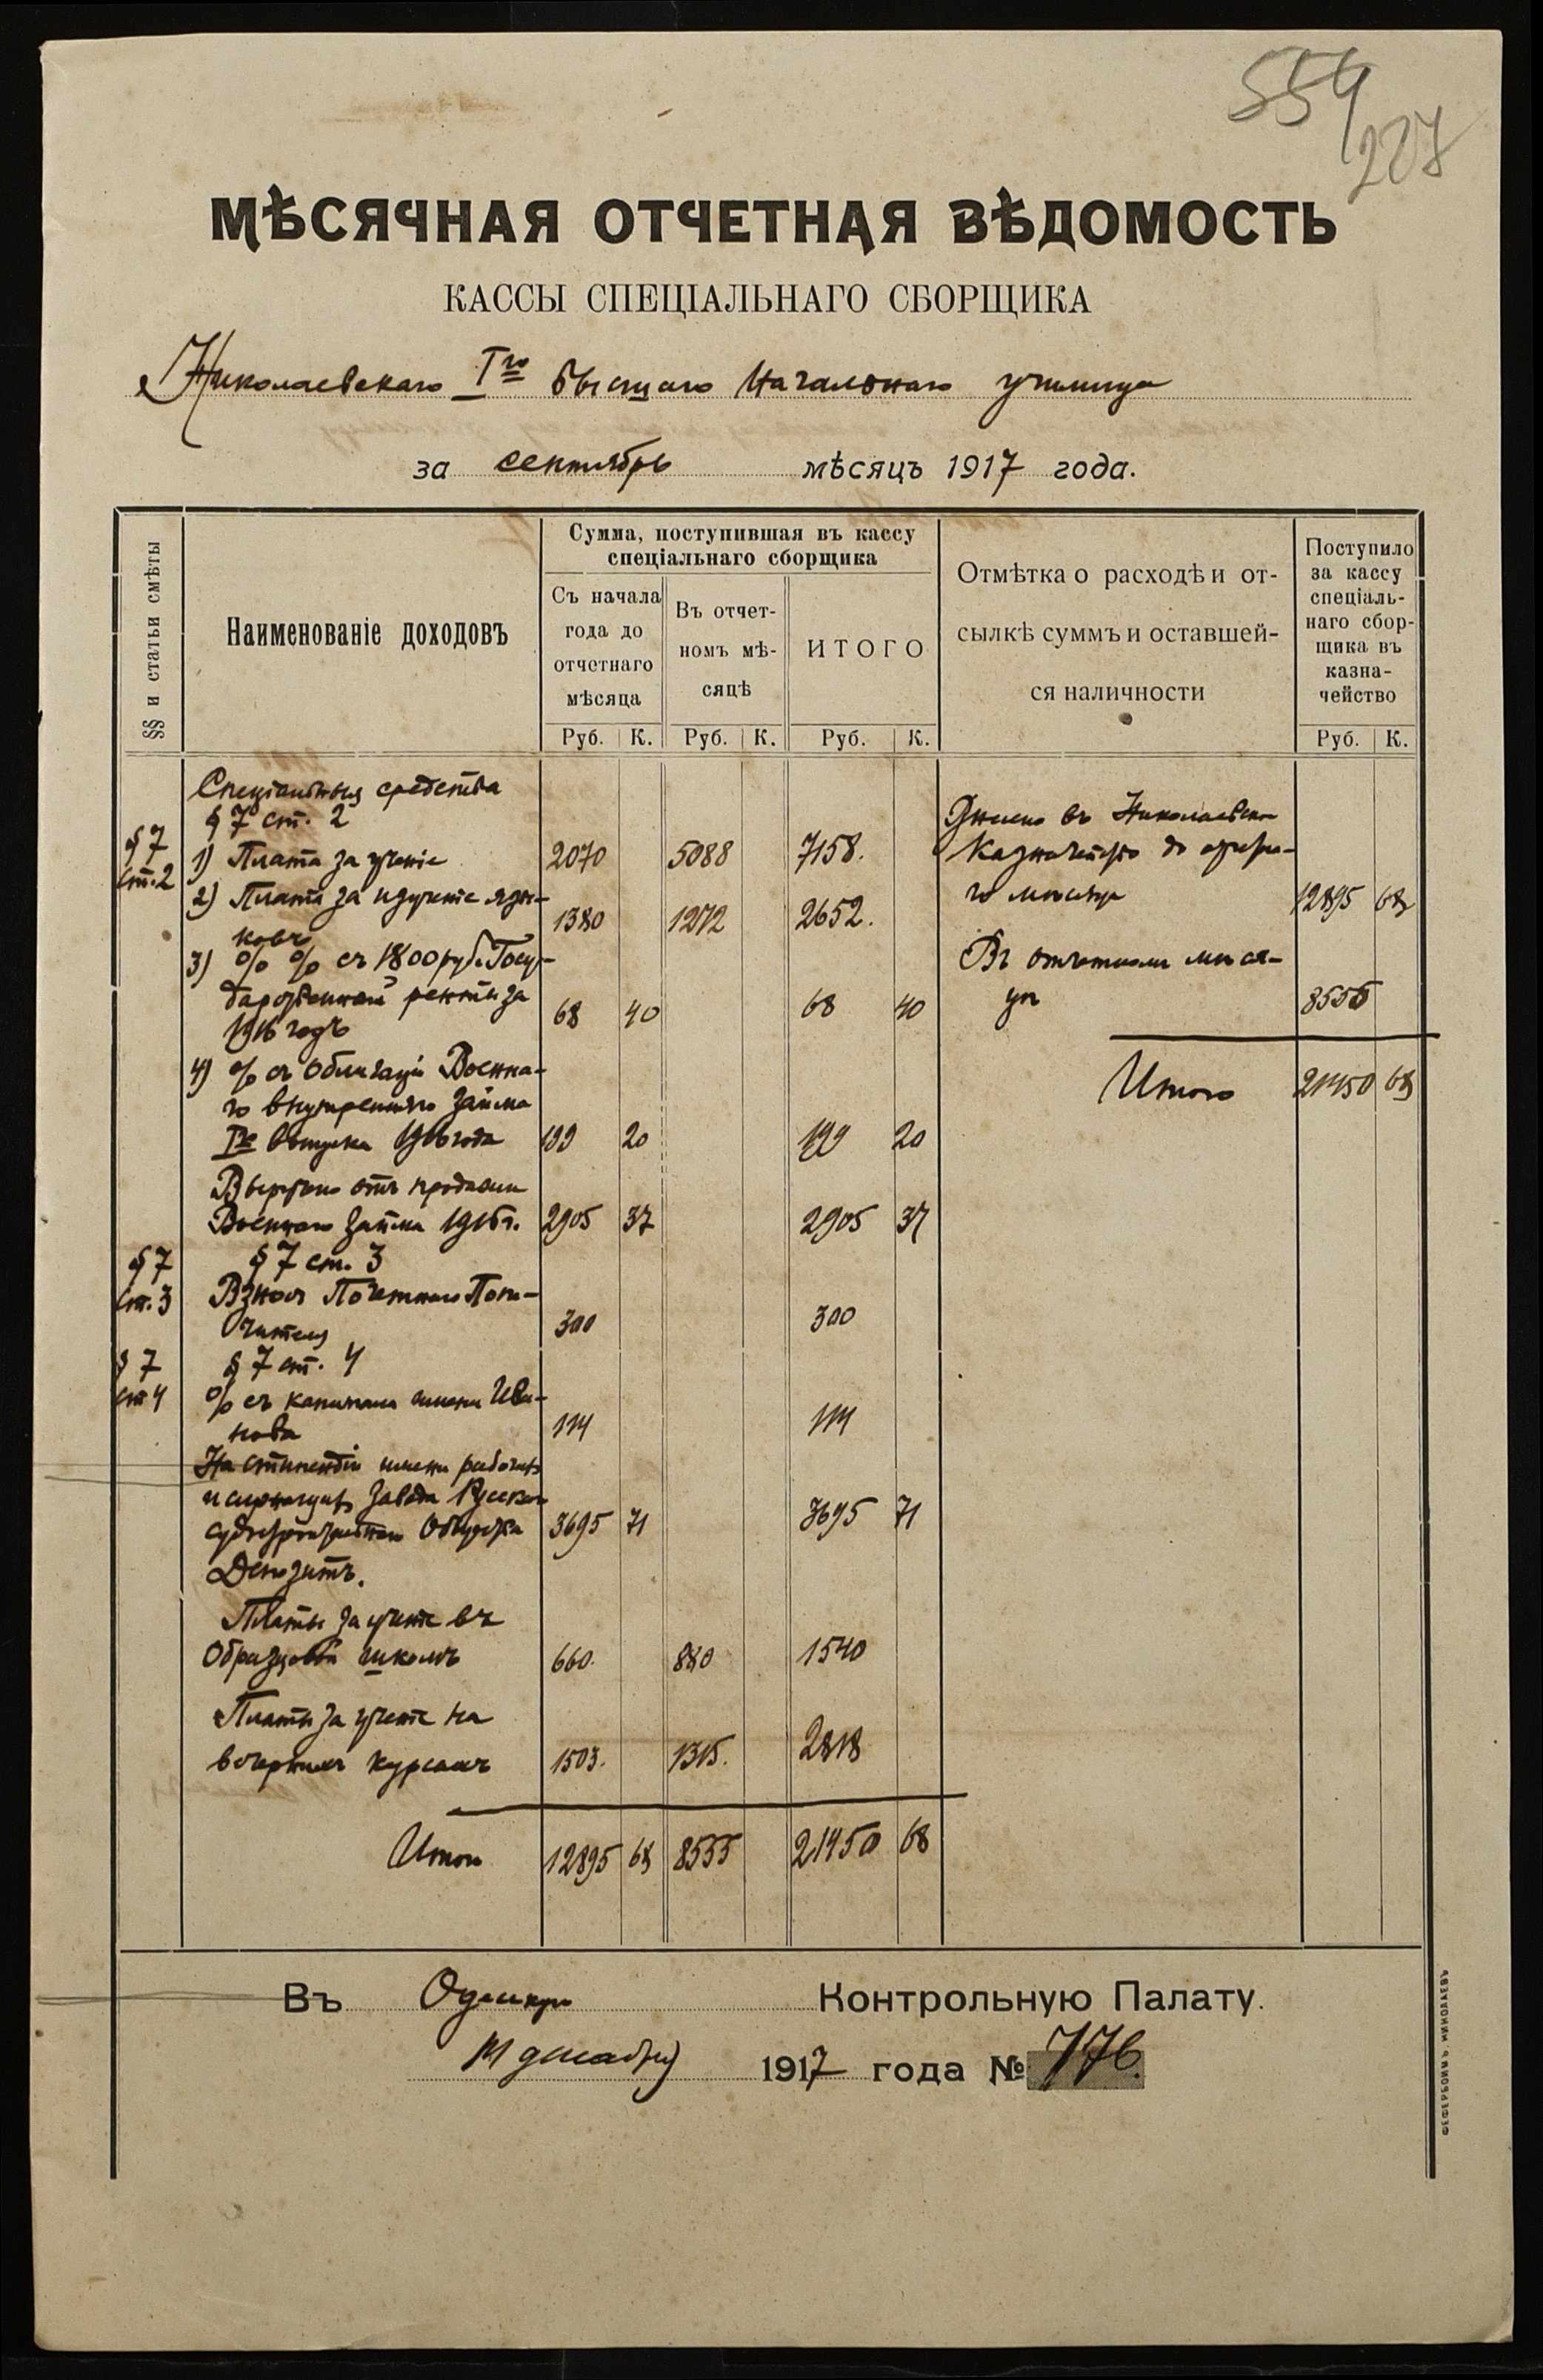 559
207
МѢСЯЧНАЯ ОТЧЕТНАЯ ВѢДОМОСТЬ
КАССЫ СПЕЦІАЛЬНАГО СБОРЩИКА
Николаевскаго Iго Высшаго Начальнаго училища
за сентябрь мѣсяцъ 1917 года.
§§ и статьи смѣты
Наименованіе доходовъ
Сумма, поступившая въ кассу
спеціальнаго сборщика
Съ начала
года до
отчетнаго
мѣсяца
Въ отчет-
номъ мѣ-
сяцѣ
ИТОГО
Отмѣтка о расходѣ и от-
сылкѣ суммъ и оставшей-
ся наличности
Поступило
за кассу
спеціаль-
наго сбор-
щика въ
казна-
чейство
Руб. К. Руб. К. Руб. К. Руб. К.
Спеціальныя средства
§ 7 ст. 2
§ 7
ст. 2
1) Плата за ученіе 2070 5088 7158.
2) Плата за изученіе язы-
ковъ 1380 1272 2652.
3) % % съ 1800 руб. Госу-
дарственной ренты за
1916 годъ 68 40 68 40
4) % съ облигацій Военна-
го внутренняго займа
Iго выпуска 1916 года 199 20 199 20
Выручено отъ продажи
Военнаго займа 1916 г. 2905 37 2905 37
§ 7
ст. 3
§ 7 ст. 3
Взносъ Почетнаго Попе-
чителя 300 300
§ 7
ст 4
§ 7 ст. 4
% съ капитала имени Ива-
нова 114 114
На стипендіи имени рабочихъ
и служащихъ завода Русскаго
судостроительнаго Общества 3695 71 3695 71
Депозитъ.
Платы за ученіе въ
Образцовой школѣ 660. 880 1540
Платы за ученіе на
вечернихъ курсахъ 1503. 1315. 2818
Итого 12895 68 8555 21450 68
Внесено въ Николаевское
Казначейство до отчетна-
го мѣсяца 12895 68
Въ отчетномъ мѣся-
цѣ 8555
Итого 21450 68
Въ Одесскую Контрольную Палату.
14 декабря 1917 года № 776.
ФЕФЕРБОЙМЪ НИКОЛАЕВЪ